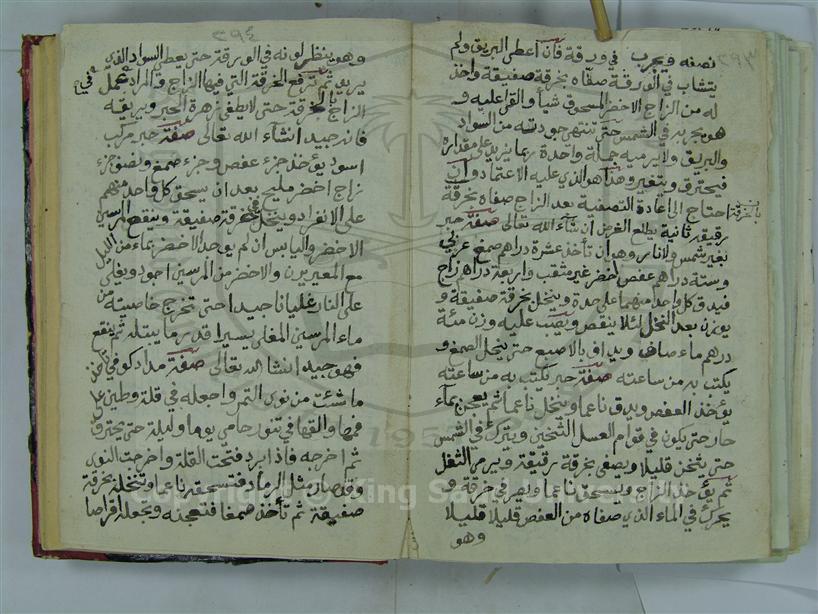 ٣٩٣
نصفه ويجرب في ورقة فان اعطى البريق ولم
يتشاب في الورقة صفاه بخرقة صفيقة واخذ
له من الزاج الاخضر المسحوق شيأ والقى عليه و
هو يجربه في الشمس حتى تنتهي جودته من السواد
والبريق ولا يرميه جملة واحدة ربما يزيد على مقداره
فيحترق ويتغير وهذا هو الذي عليه الاعتماد وان
احتاج الى اعادة التصفية بعد الزاج صفاه بخرقة
رقيقة ثانية يطلع الغرض ان شآء الله تعالى صفة حبر
بغير شمس ولا نار وهو ان تأخذ عشرة دراهم صمغ عربي
وستة دراهم عفص اخضر غير مثقب واربعة دراهم زاج
فيدق كل واحد منهما على حدة وينخل بخرقة صفيقة و
يوزن بعد النخل لئلا ينقص ويصب عليه وزن مئة
دراهم ماء صاف ويداف بالاصبع حتى ينحل الصمغ و
يكتب به من ساعته صفة حبر يكتب به من ساعته
يؤخذ العفص ويدق ناعما وينخل ناعما ثم يعجن بمآء
حار حتى يكون في قوام العسل الثخين ويترك في الشمس
حتى يثخن قليلا ويصفى بخرقة رقيقة ويرمى الثفل
ثم يؤخذ الزاج ويسحق ناعما ويصر في خرقة و
يحرك في الماء الذي صفاه من العفص قليلا قليلا
وهو
٣٩٤
وهو ينظر لونه في الورقة حتى يعطى السواد الذي
يريق ثم ترفع الخرقة التي فيها الزاج والمراد بعمل
الزاج بالخرقة حتى لا يطفى زهرة الحبر وبريقه
فانه جيد انشآء الله تعالى صفة حبر مركب
اسود يؤخذ جزء عفص وجزء صمغ ونصف جزء
زاج اخضر مليح بعد ان يسحق كل واحد منهم
على الانفراد وينخل في خرقة صفيقة وينقع المرسين
الاخضر واليابس ان لم يوجد الاخضر بماء من الليل
مع المعيريرن والاخضر من المرسين اجود ويغلى
على النار غليانا جيدا حتى تخرج خاصيته من
ماء المرسين المغلى يسيرا قدر ما يبتله ثم ينقع
فهو جيد انشا الله تعالى صفة مداد كوفي تأخذ
ما شئت من نوى التمر واجعله في قلة وطين على
فمها والقها في تنور حامي يوما وليلة حتى يحترق
ثم اخرجه فاذا برد فتحت القلة واخرجت النوى
وقد صار مثل الرماد فتسحقه ناعما وتنخله بخرقة
صفيقة ثم تأخذ صمغا فتعجنه وتجعله اقراصا
Copyright © King Saud University
1957